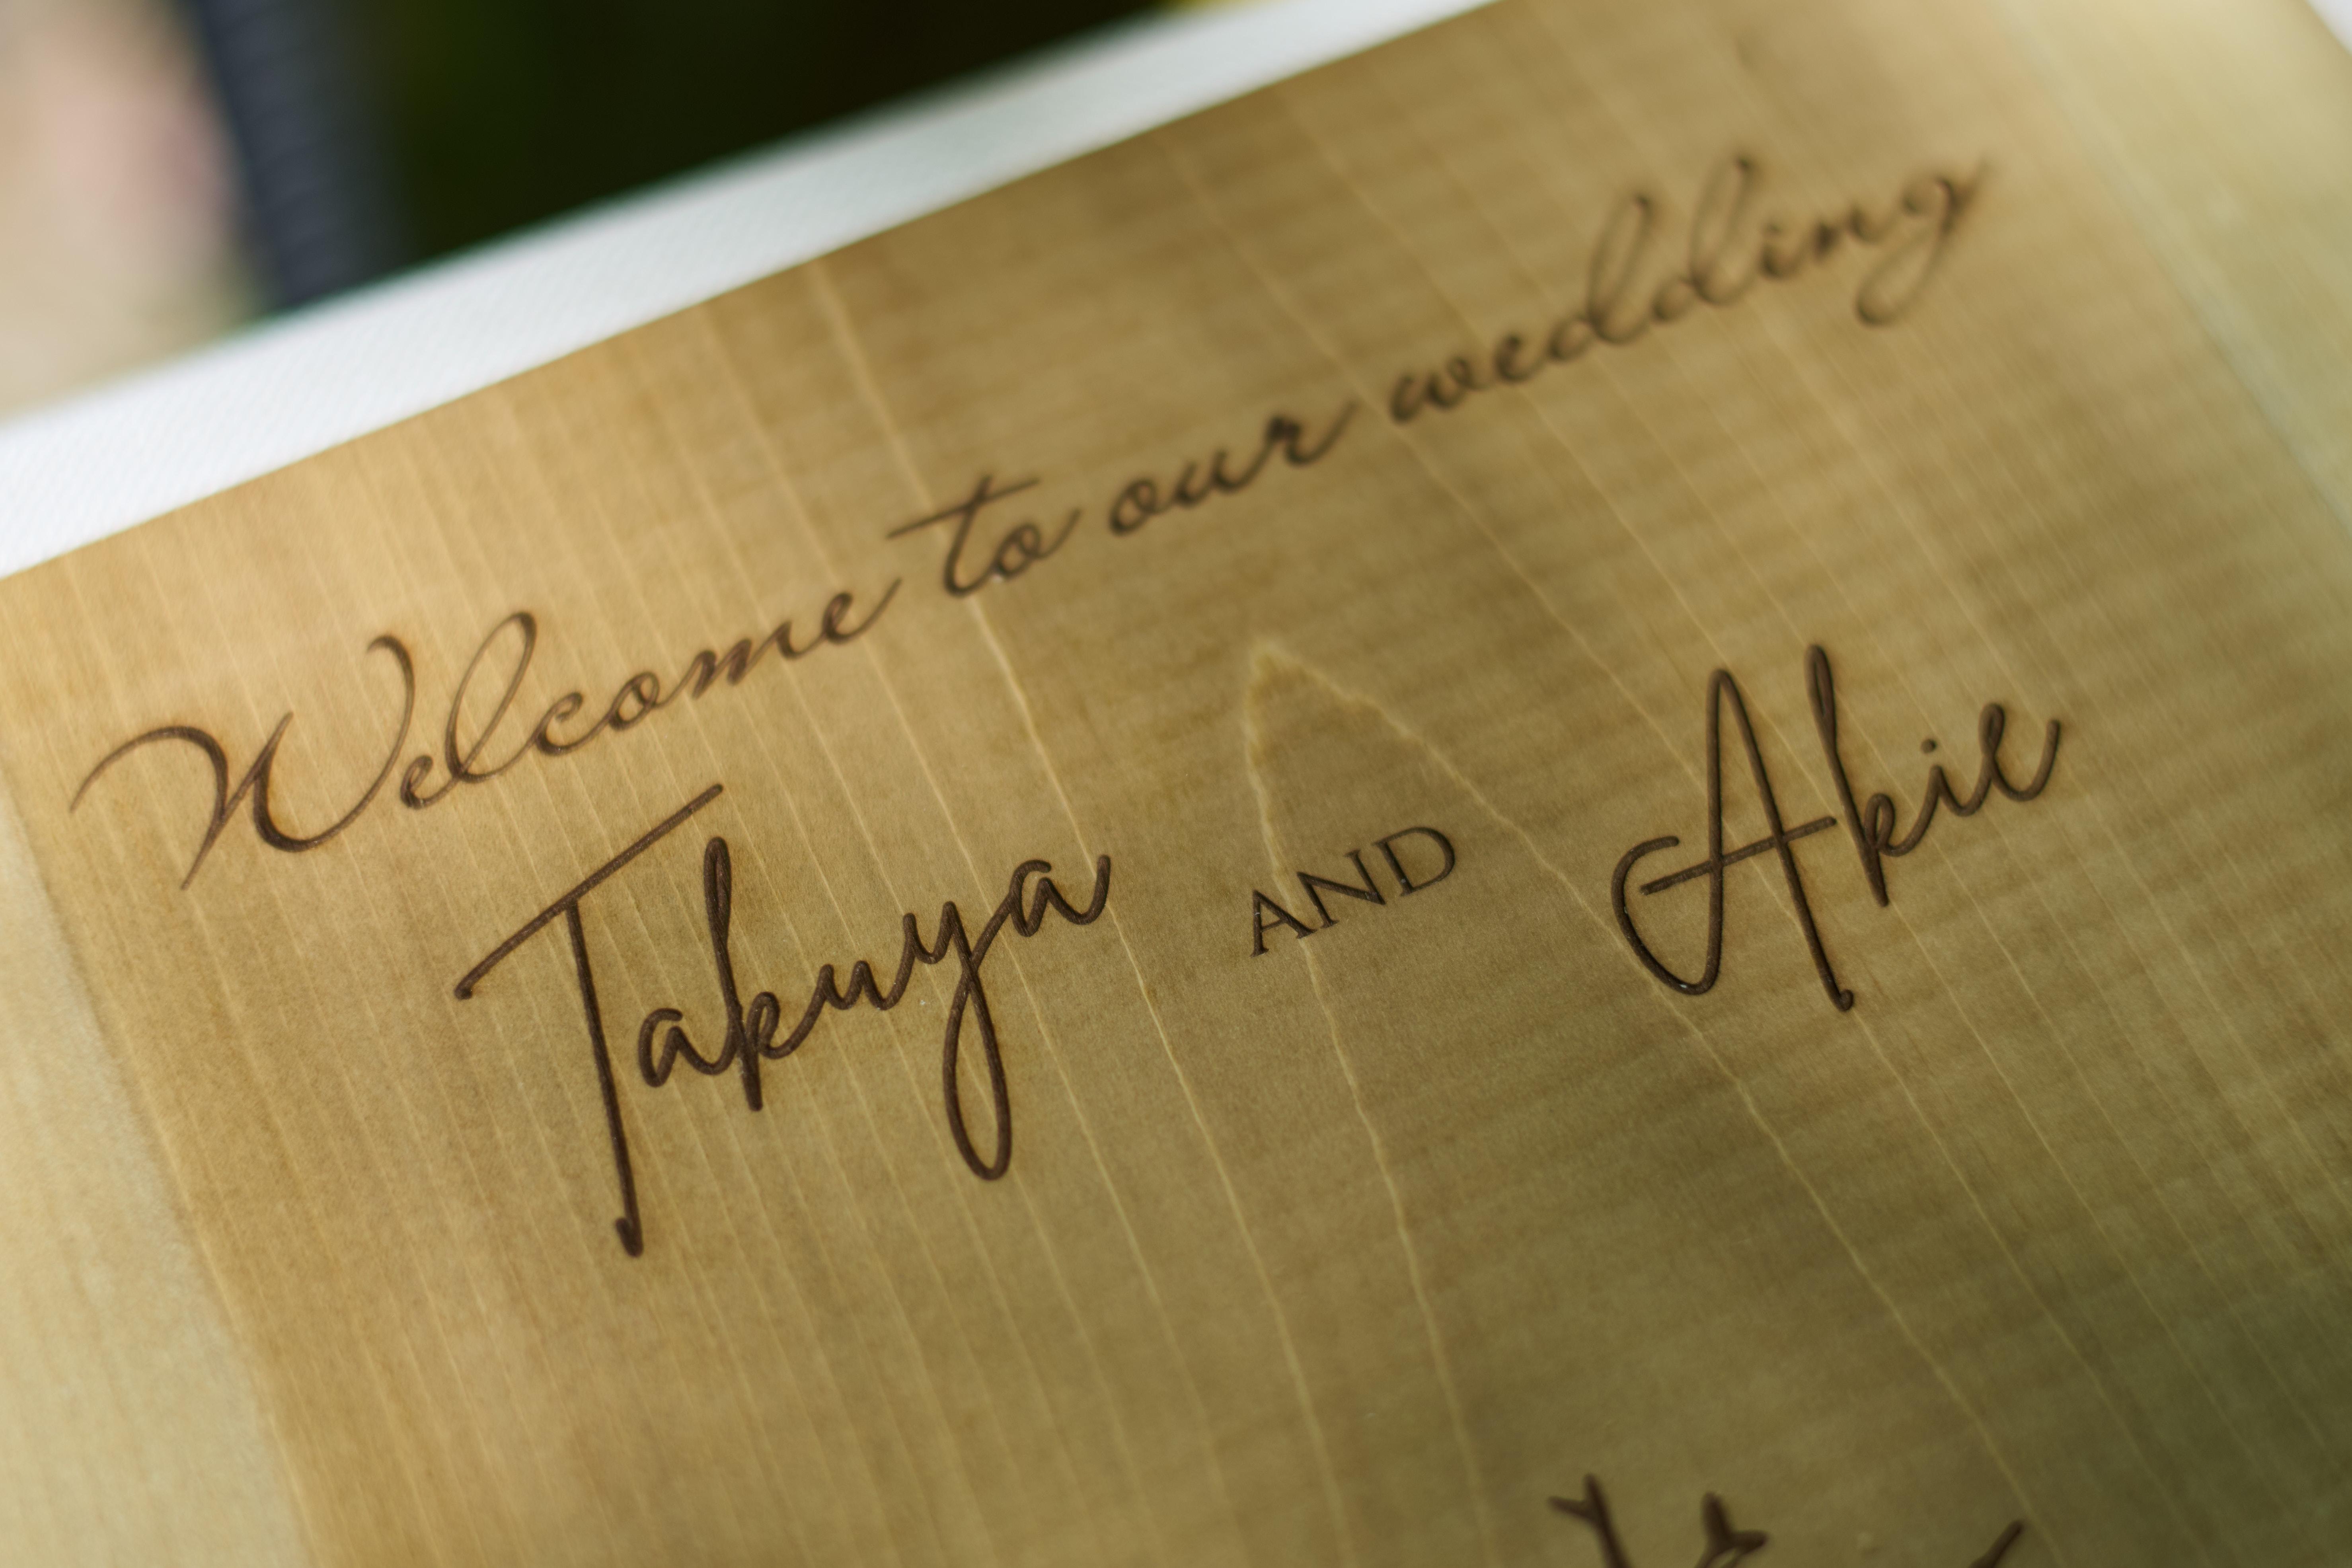 Welcome to our wedding
Takuya AND Akie